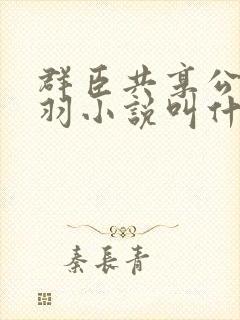 群臣共享公
羽小說叫什
秦長青